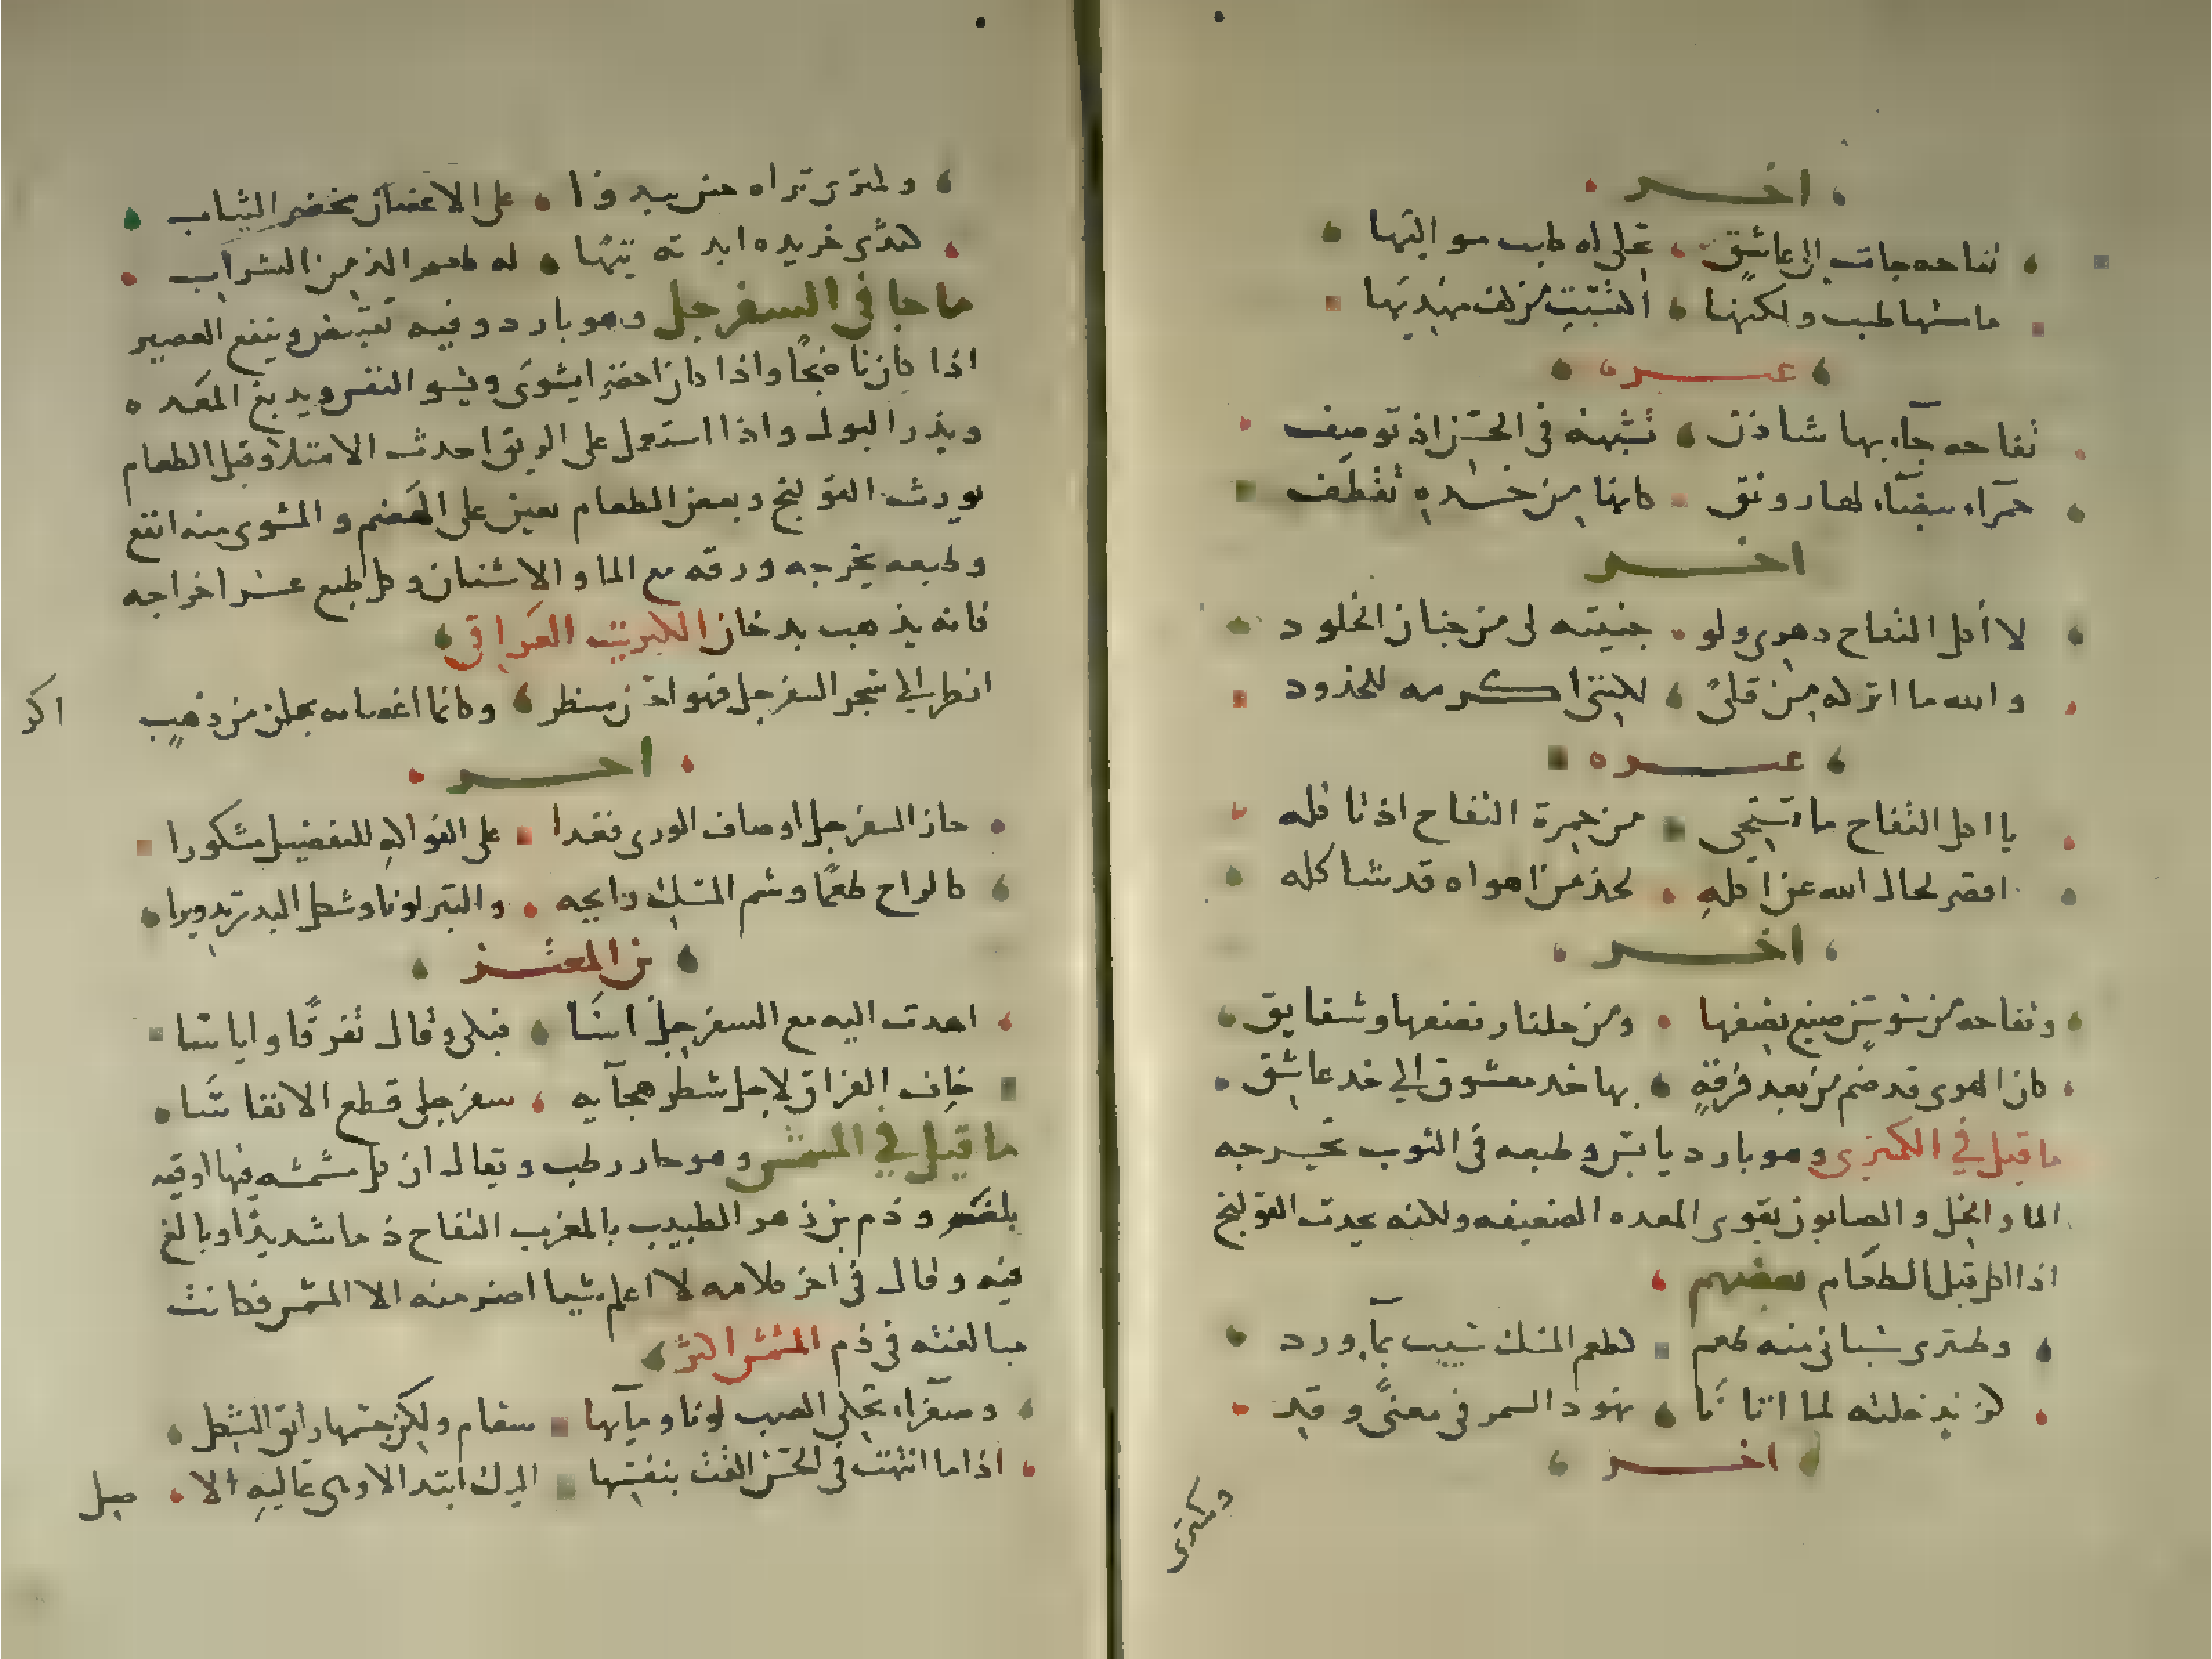 اخر
تفاحه جات الى عاشق تجلى له طيب مواليها
ما مسها طيب ولكنها اكتسبت من كف مهديها
غيره
تفاحه جآء بها شادن تشبهه في الحسن اذ توصف
حمرآء بيضآء لها رونق كانها من خده تقطف
اخر
لا أكل التفاح دهرى ولو جنيته لى من جنان الخلود
والله ما اتركه من قلىً لكننى اكرمه للخدود
غيره
يا اكل التفاح ما تستحى من حمرة التفاح اذ تاكله
اقصر لحاك الله عن اكلهِ فخد من اهواه قد شاكله
اخر
وتفاحه من سوسن صيغ نصفها ومن جلنار نصفها وشقايق
كان الهوى قد ضم من بعد فرقةٍ بها خد معشوق الى خد عاشق
ما قيل في الكمثرى وهو بارد يابس وطبعه في الثوب يخرجه
الما والخل والصابون يقوى المعده الضعيفه ولكنه يحدث القولنج
اذا اكل قبل الطعام بعضهم
وكمثرى سبانى منه طعم كطعم المسك شيب بمآورد
لذيذ خلته لما اتانا نهود السمر في معنًى وقد
اخر
وكمثرى
وكمثرى تراه حين يبدوا على الاغصان مخضر الثياب
كثدى خريده ابدته تيها له طعم الذ من الشراب
ما جا في السفرجل وهو بارد وفيه تقبض وينفع العصير
اذا كان ناضجًا واذا كان اخضر ايشوى ويسر النفس ويدبغ المعده
ويدر البول واذا استعمل على الريق احدث الامتلا وقبل الطعام
يورث القولنج وبعض الطعام يعين على الهضم والمشوى منه انفع
وطبعه يخرجه ورقه مع الما والاشنان وكل طبع عسر اخراجه
فانه يذهب بدخان الكبريت العراقى
انظر الى شجر السفرجل فهو احسن منظر وكانما اغصانه يحملن من ذهب
اكر
اخر
حاز السفرجل اوصاف الورى فغدا على الفواكه للتفضيل مشكورا
كالراح طعمًا وشم المسك رايحه والتبر لونا وشكل البدر تدويرا
بن المعتز
اهدت اليه مع السفرجل اسًا فبكى وقال تفرقًا واياسا
خاف الفراق لاجل شطر هجآيه سفرجلى قطع الانفاسا
ما قيل في المشمش وهو حار رطب ويقال ان كل مشمشه فيها اوقيه
بلغم وذم بن زهر الطبيب بالمغرب التفاح ذما شديدًا وبالغ
فيه وقال في اخر كلامه لا اعلم شيا اضر منه الا المشمش فكانت
مبالغته في ذم المشمش اكثر
وصفرآء تحكى الصب لونا ومآبها سقام ولكن جسمها رائق الشكل
اذا ما انتهت في الحسن القت بنفسها اليك ابتدا الاوهى غاليه الا صل